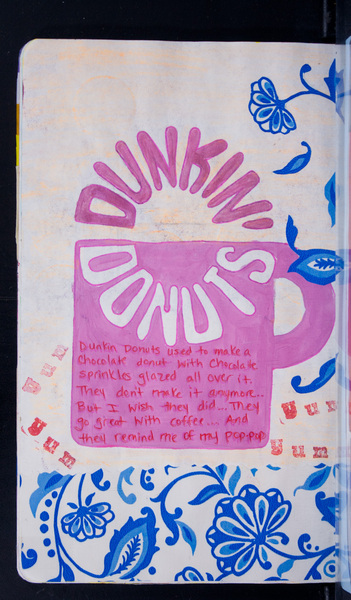 DUNKIN'
DONUTS
Dunkin Donuts used to make a
chocolate donut with chocolate
sprinkles glazed all over it.
They don't make it anymore..
But I wish they did...They
go great with coffee... And
they remind me of my pop-pop
Yum
Yum
Yum
Yum